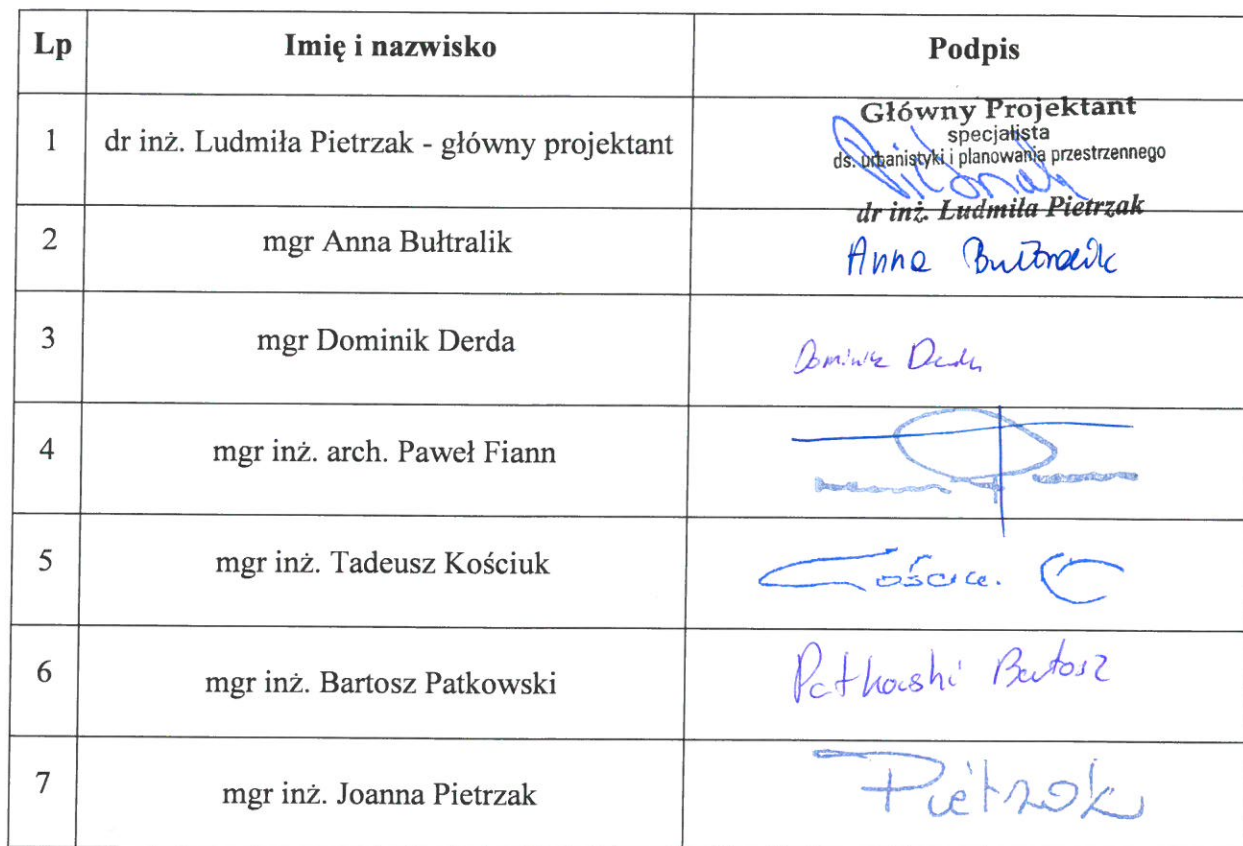 Lp Imię i nazwisko Podpis
1 dr inż. Ludmiła Pietrzak - główny projektant
Główny Projektant
specjalista
ds. urbanistyki i planowania przestrzennego
dr inż. Ludmiła Pietrzak
2 mgr Anna Bułtralik Anna Bułtralik
3 mgr Dominik Derda Dominik Derda
4 mgr inż. arch. Paweł Fiann
5 mgr inż. Tadeusz Kościuk
6 mgr inż. Bartosz Patkowski Patkowski Bartosz
7 mgr inż. Joanna Pietrzak Pietrzak